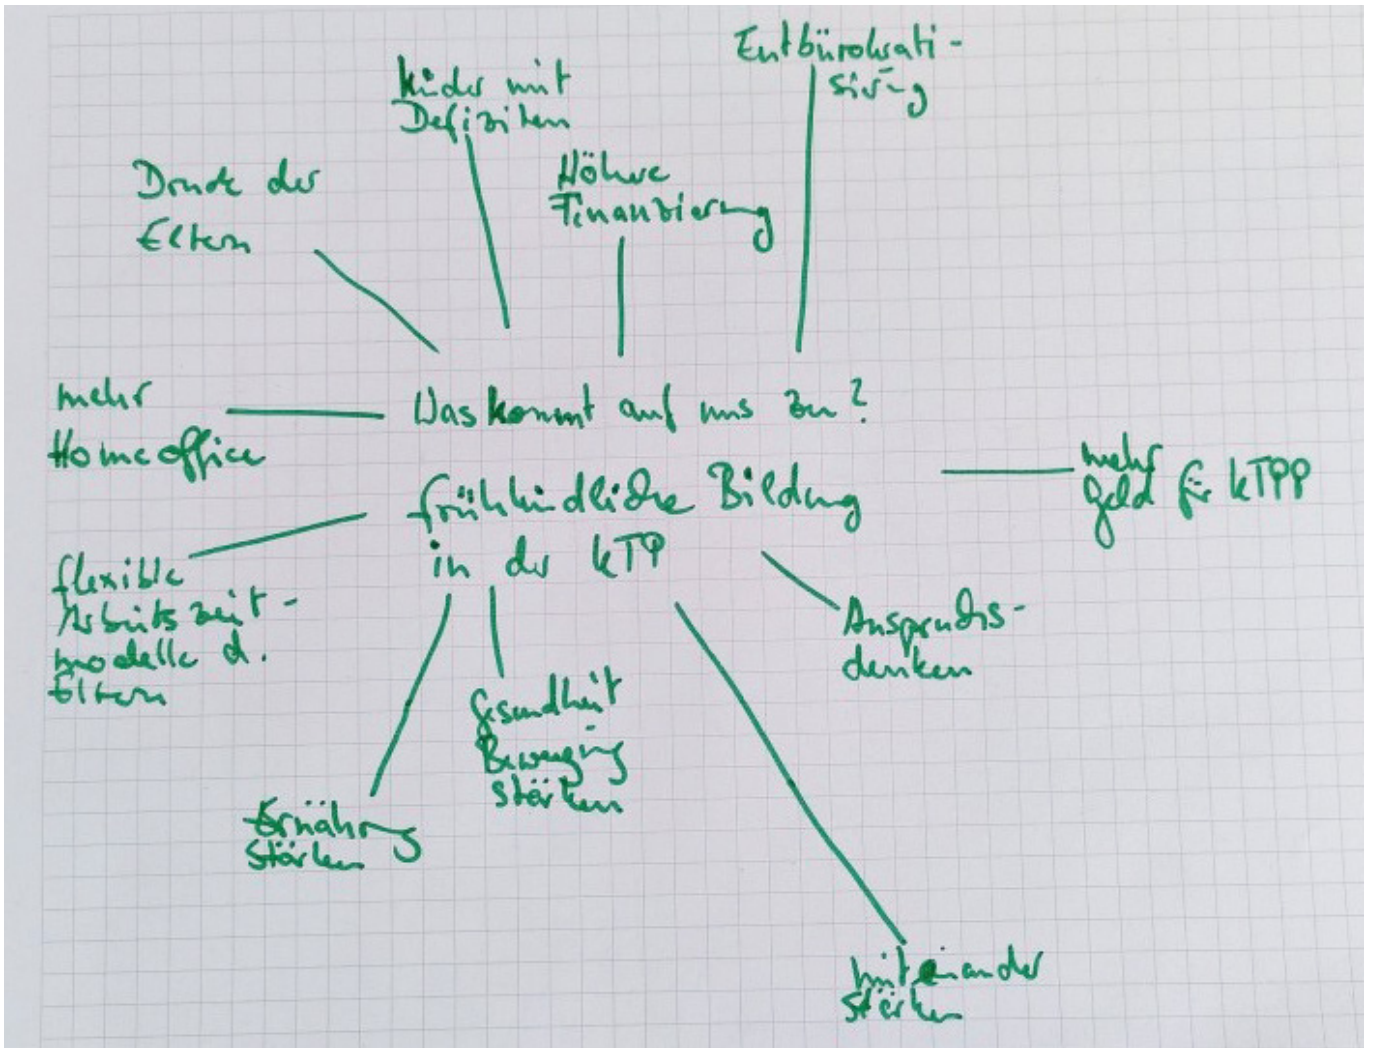 Entbürokrati-
sierung
Kinder mit
Defiziten
Höhere
Finanzierung
Druck der
Eltern
mehr
Homeoffice
Was kommt auf uns zu?
frühkindliche Bildung
in der kTP
mehr
Geld für kTPP
flexible
Arbeitszeit-
modelle d.
Eltern
Anspruchs-
denken
Gesundheit
Bewegung
stärken
Ernährung
stärken
miteinander
stärken